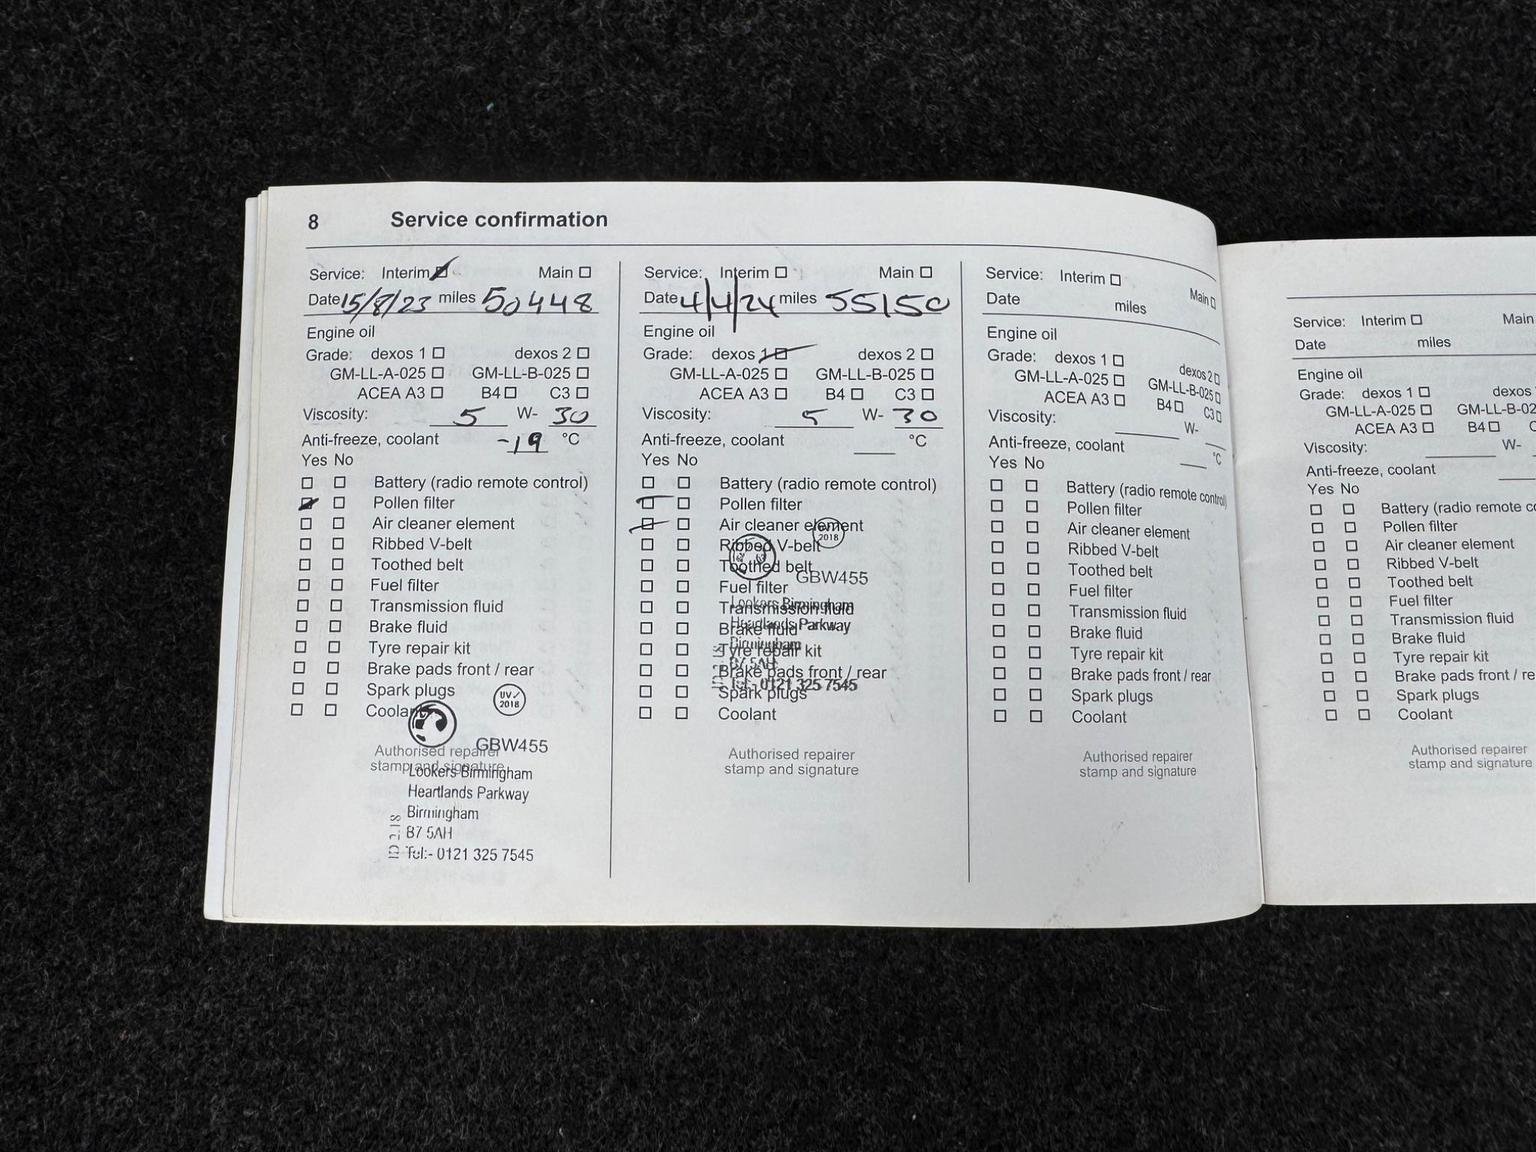 8 Service confirmation
Service: Interim Main
Date 15/8/23 miles 50448
Engine oil
Grade: dexos 1 dexos 2
GM-LL-A-025 GM-LL-B-025
ACEA A3 B4 C3
Viscosity: 5 W- 30
Anti-freeze, coolant -19 °C
Yes No
Battery (radio remote control)
Pollen filter
Air cleaner element
Ribbed V-belt
Toothed belt
Fuel filter
Transmission fluid
Brake fluid
Tyre repair kit
Brake pads front / rear
Spark plugs
Coolant
UV✓
2018
GBW455
Authorised repairer
stamp and signature
Lookers Birmingham
Heartlands Parkway
Birmingham
B7 5AH
Tel:- 0121 325 7545
Service: Interim Main
Date 4/4/24 miles 55150
Engine oil
Grade: dexos 1 dexos 2
GM-LL-A-025 GM-LL-B-025
ACEA A3 B4 C3
Viscosity: 5 W- 30
Anti-freeze, coolant °C
Yes No
Battery (radio remote control)
Pollen filter
Air cleaner element
Ribbed V-belt
Toothed belt
Fuel filter
Transmission fluid
Brake fluid
Tyre repair kit
Brake pads front / rear
Spark plugs
Coolant
2018
GBW455
Lookers Birmingham
Heartlands Parkway
Birmingham
B7 5AH
Tel:- 0121 325 7545
Authorised repairer
stamp and signature
Service: Interim Main
Date miles
Engine oil
Grade: dexos 1 dexos 2
GM-LL-A-025 GM-LL-B-025
ACEA A3 B4 C3
Viscosity: W-
Anti-freeze, coolant °C
Yes No
Battery (radio remote control)
Pollen filter
Air cleaner element
Ribbed V-belt
Toothed belt
Fuel filter
Transmission fluid
Brake fluid
Tyre repair kit
Brake pads front / rear
Spark plugs
Coolant
Authorised repairer
stamp and signature
Service: Interim Main
Date miles
Engine oil
Grade: dexos 1 dexos
GM-LL-A-025 GM-LL-B-02
ACEA A3 B4
Viscosity: W-
Anti-freeze, coolant
Yes No
Battery (radio remote co
Pollen filter
Air cleaner element
Ribbed V-belt
Toothed belt
Fuel filter
Transmission fluid
Brake fluid
Tyre repair kit
Brake pads front / re
Spark plugs
Coolant
Authorised repairer
stamp and signature